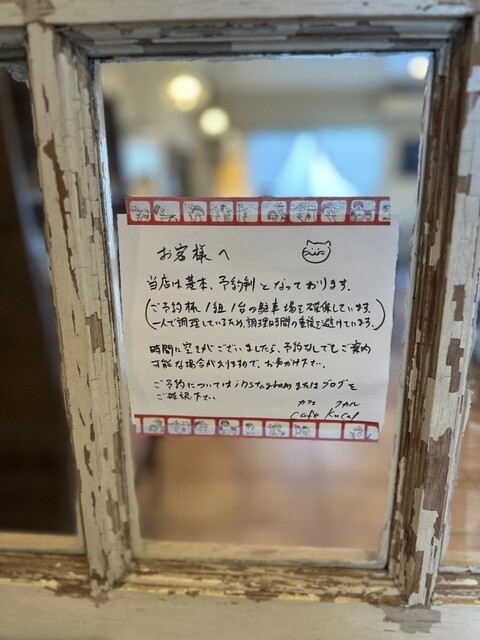 お客様へ
当店は基本、予約制となっております。
(ご予約様1組1台の駐車場を確保しています。
一人で調理しているため、調理時間の重複を避けています。)
時間に空きがございましたら、予約なしでもご案内
可能な場合がありますので、お声がけ下さい。
ご予約についてはinstagramまたはブログを
ご確認下さい
カフェ クカル
Cafe Kucal